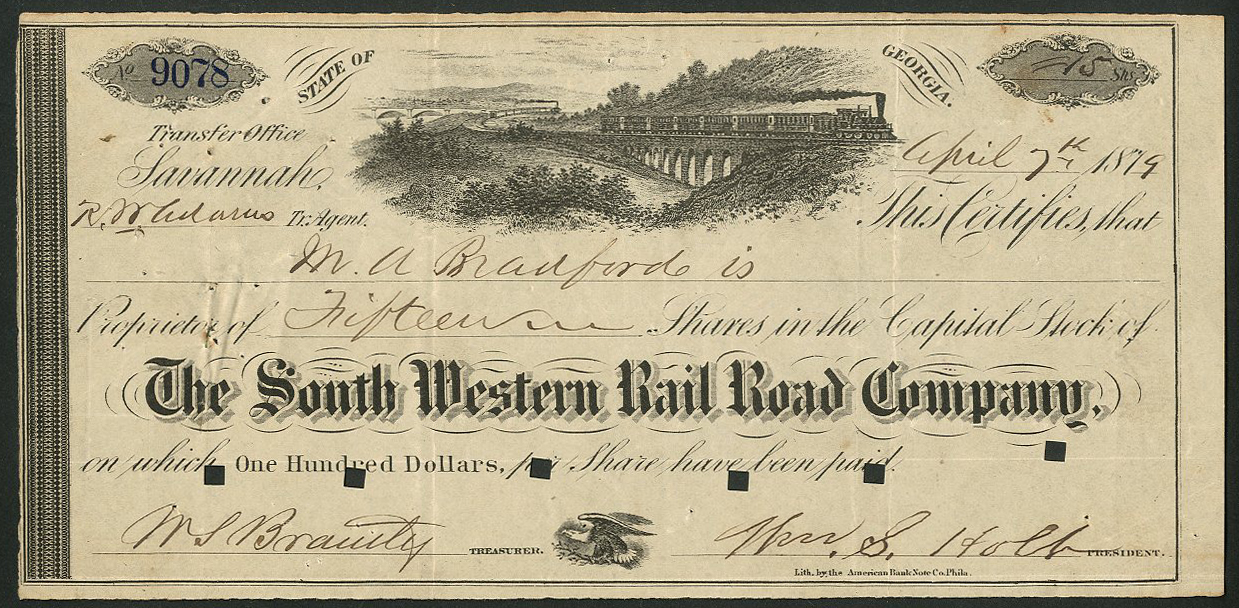 No 9078
STATE OF GEORGIA.
15 Shs
Transfer Office
Savannah.
April 7th 1879
R. W. Adams Tr: Agent.
This Certifies, that
M. A Bradford is
Proprietor of Fifteen Shares in the Capital Stock of
The South Western Rail Road Company,
on which One Hundred Dollars, per Share have been paid.
W S Brantley TREASURER.
Wm. S. Holt PRESIDENT.
Lith. by the American Bank Note Co. Phila.